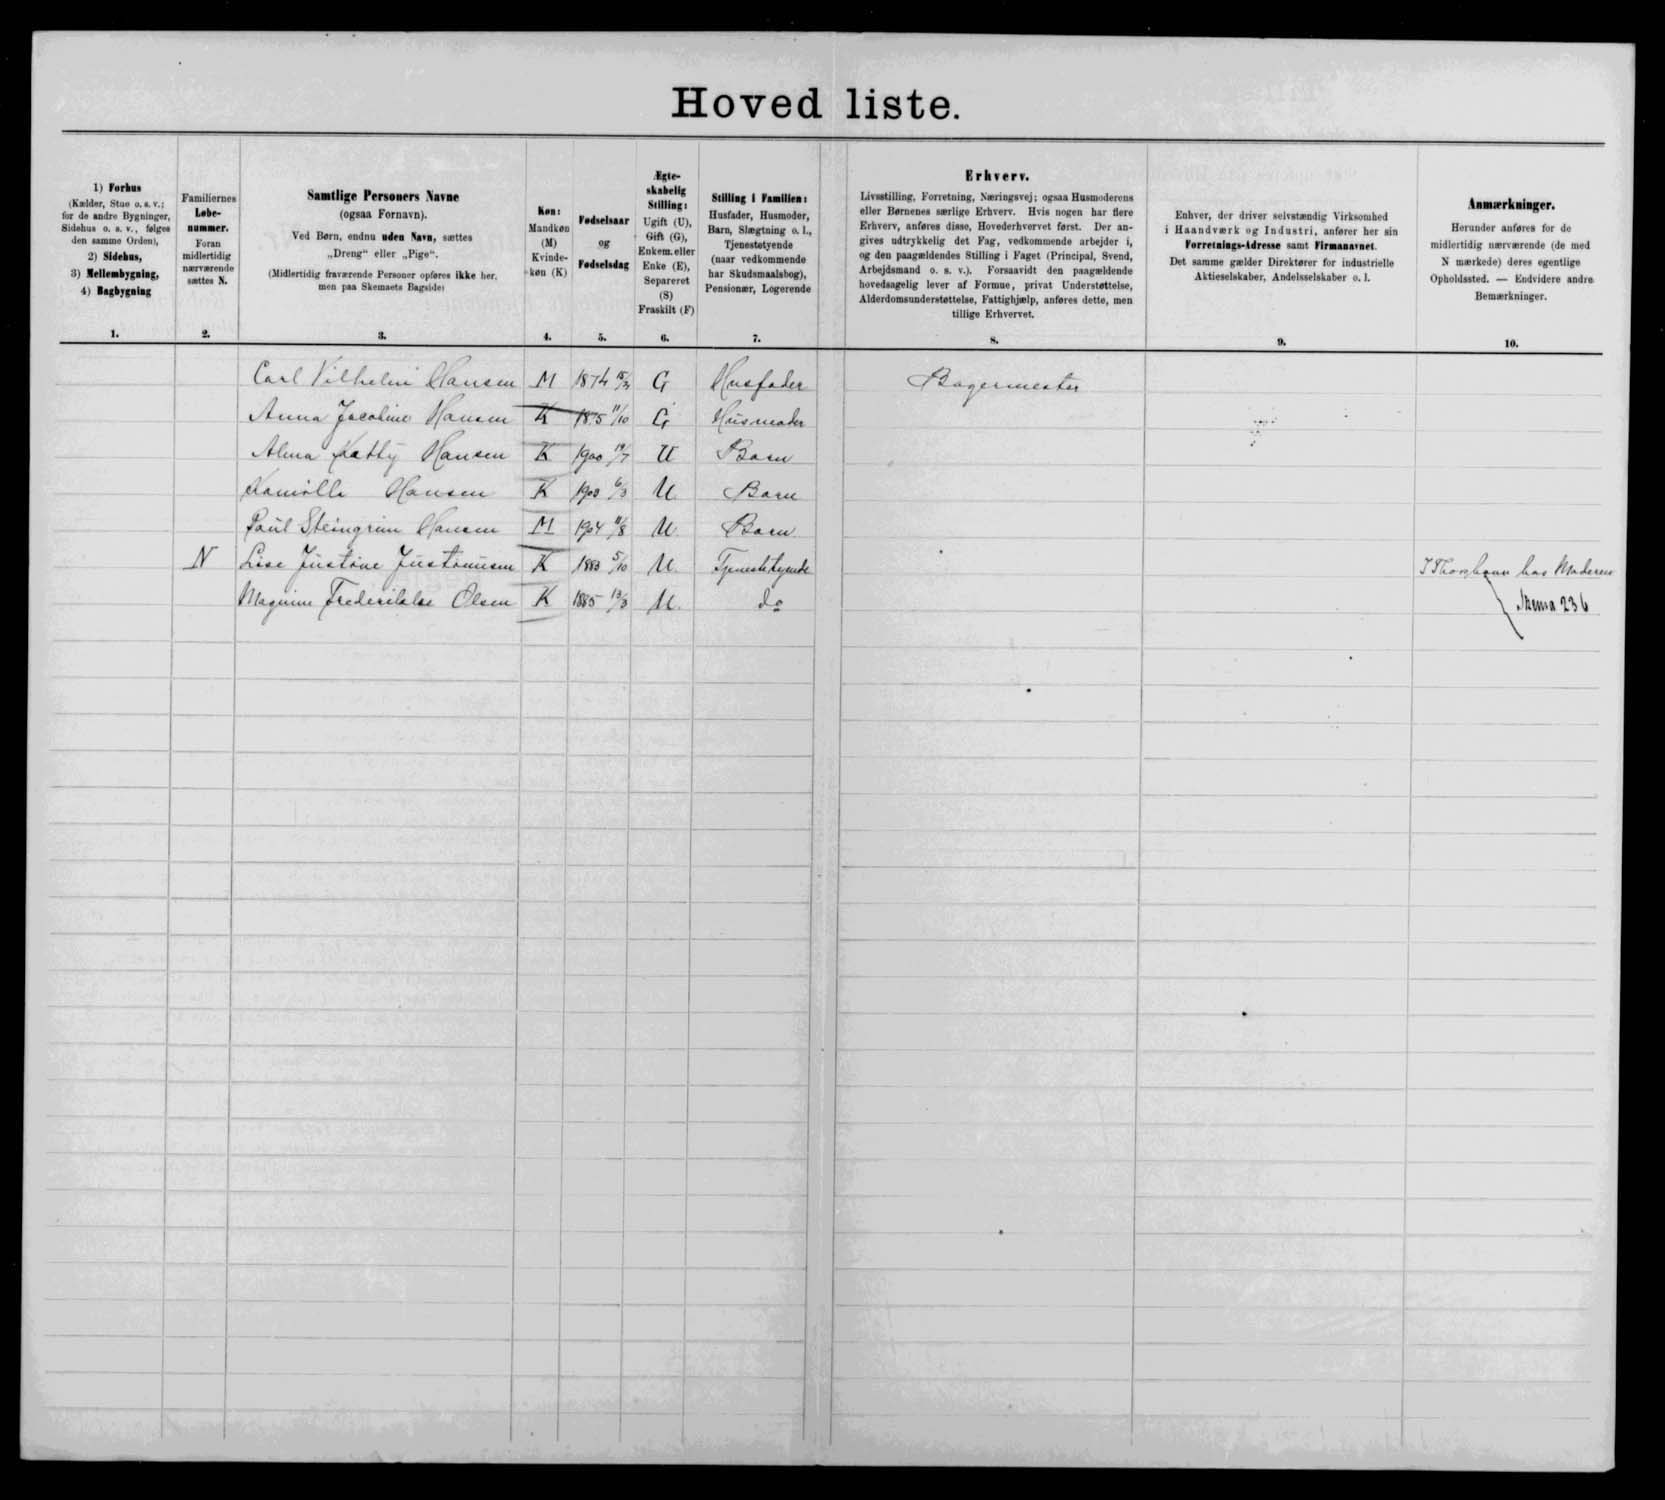 Hoved liste.
1) Forhus
(Kælder, Stue o. s. v.;
for de andre Bygninger,
Sidehus o. s. v., følges
den samme Orden),
2) Sidehus,
3) Mellembygning,
4) Bagbygning
1.
Familiernes
Løbe-
nummer.
Foran
midlertidig
nærværende
sættes N.
2.
Samtlige Personers Navne
(ogsaa Fornavn).
Ved Børn, endnu uden Navn, sættes
„Dreng“ eller „Pige“.
(Midlertidig fraværende Personer opføres ikke her,
men paa Skemaets Bagside)
3.
Køn:
Mandkøn
(M)
Kvinde-
køn (K)
4.
Fødselsaar
og
Fødselsdag
5.
Ægte-
skabelig
Stilling:
Ugift (U),
Gift (G),
Enkem. eller
Enke (E),
Separeret
(S)
Fraskilt (F)
6.
Stilling i Familien:
Husfader, Husmoder,
Barn, Slægtning o. l.,
Tjenestetyende
(naar vedkommende
har Skudsmaalsbog),
Pensionær, Logerende
7.
Erhverv.
Livsstilling, Forretning, Næringsvej; ogsaa Husmoderens
eller Børnenes særlige Erhverv. Hvis nogen har flere
Erhverv, anføres disse, Hovederhvervet først. Der an-
gives udtrykkelig det Fag, vedkommende arbejder i,
og den paagældendes Stilling i Faget (Principal, Svend,
Arbejdsmand o. s. v.). Forsaavidt den paagældende
hovedsagelig lever af Formue, privat Understøttelse,
Alderdomsunderstøttelse, Fattighjælp, anføres dette, men
tillige Erhvervet.
8.
Enhver, der driver selvstændig Virksomhed
i Haandværk og Industri, anfører her sin
Forretnings-Adresse samt Firmanavnet.
Det samme gælder Direktører for industrielle
Aktieselskaber, Andelsselskaber o. l.
9.
Anmærkninger.
Herunder anføres for de
midlertidig nærværende (de med
N mærkede) deres egentlige
Opholdssted. — Endvidere andre
Bemærkninger.
10.
Carl Vilhelm Hansen M 1874 15/3 G Husfader Bagermester
Anna Jacobine Hansen K 1875 11/10 G Husmoder
Alma Katty Hansen K 1900 19/7 U Barn
Kamilla Hansen K 1903 6/3 U Barn
Paul Steingrim Hansen M 1904 11/8 U Barn
N Lise Justine Justinusen K 1883 5/10 U Tjenestetyende I Thorshavn hos Moderen
Magnine Frederikke Olsen K 1885 13/3 U. do Skema 236